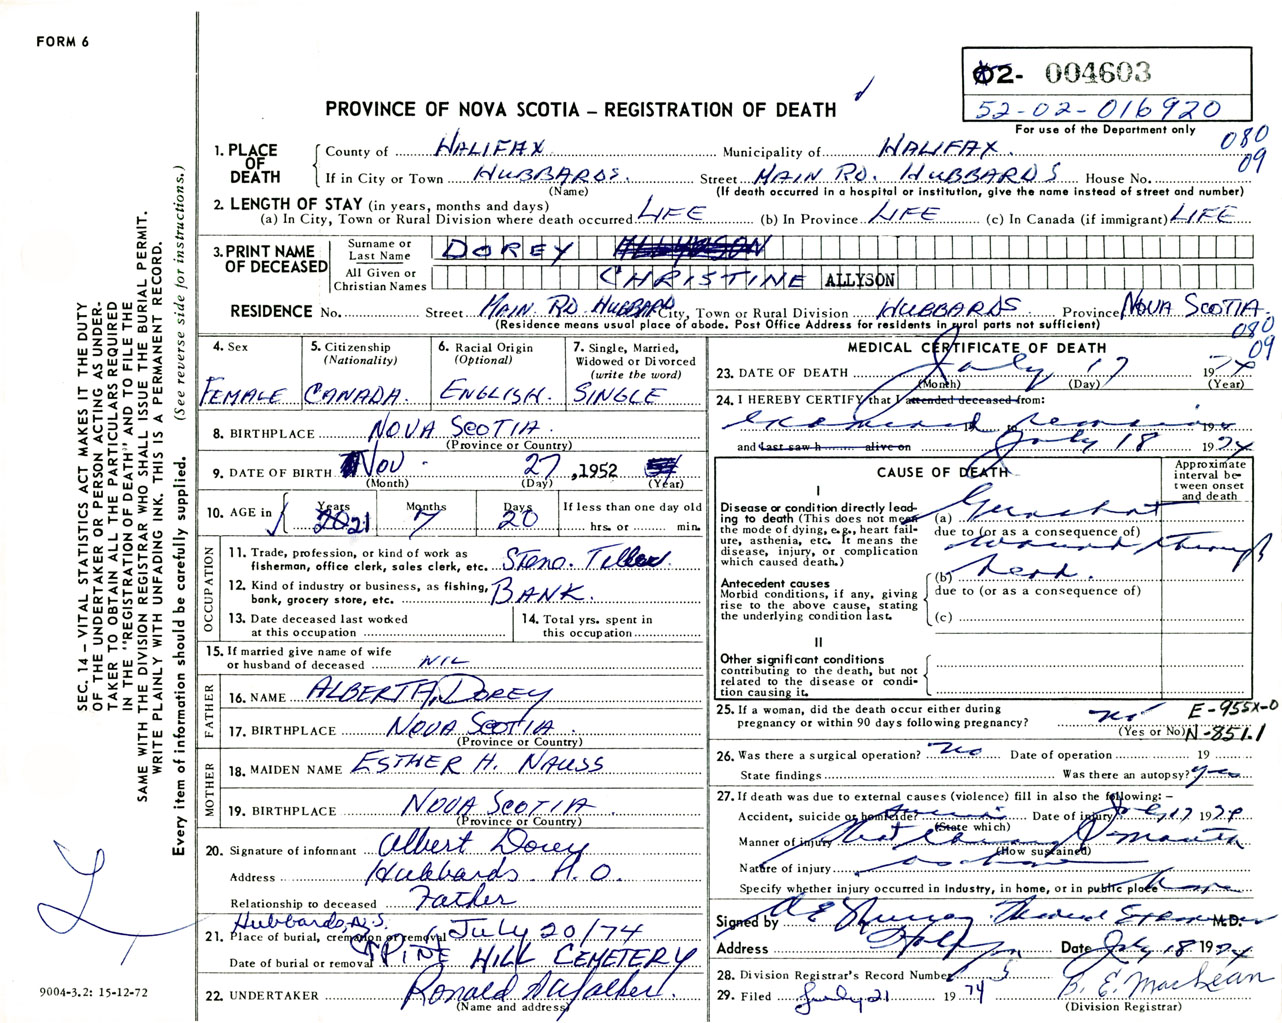 FORM 6
02- 004603
52-02-016920
For use of the Department only
PROVINCE OF NOVA SCOTIA – REGISTRATION OF DEATH
080
09
1. PLACE OF DEATH
County of HALIFAX Municipality of HALIFAX.
If in City or Town HUBBARDS. Street MAIN RD. HUBBARDS House No.
(Name) (If death occurred in a hospital or institution, give the name instead of street and number)
2. LENGTH OF STAY (in years, months and days)
(a) In City, Town or Rural Division where death occurred LIFE (b) In Province LIFE (c) In Canada (if immigrant) LIFE
3. PRINT NAME OF DECEASED
Surname or Last Name DOREY
All Given or Christian Names CHRISTINE ALLYSON
RESIDENCE No. Street MAIN RD. HUBBARD City, Town or Rural Division HUBBARDS Province NOVA SCOTIA.
(Residence means usual place of abode. Post Office Address for residents in rural parts not sufficient)
080
09
4. Sex
FEMALE
5. Citizenship
(Nationality)
CANADA.
6. Racial Origin
(Optional)
ENGLISH.
7. Single, Married,
Widowed or Divorced
(write the word)
SINGLE
8. BIRTHPLACE NOVA SCOTIA.
(Province or Country)
9. DATE OF BIRTH NOV. 27, 1952
(Month) (Day) (Year)
10. AGE in Years 21 Months 7 Days 20 If less than one day old
hrs. or min.
OCCUPATION
11. Trade, profession, or kind of work as
fisherman, office clerk, sales clerk, etc. STENO. TELLER
12. Kind of industry or business, as fishing,
bank, grocery store, etc. BANK.
13. Date deceased last worked
at this occupation
14. Total yrs. spent in
this occupation
15. If married give name of wife
or husband of deceased NIL
FATHER
16. NAME ALBERT A. DOREY
17. BIRTHPLACE NOVA SCOTIA.
(Province or Country)
MOTHER
18. MAIDEN NAME ESTHER H. NAUSS
19. BIRTHPLACE NOVA SCOTIA
(Province or Country)
20. Signature of informant Albert Dorey
Address Hubbards
Relationship to deceased Father
Hubbards, N.S.
21. Place of burial, cremation or removal July 20/74
Date of burial or removal PINE HILL CEMETERY
22. UNDERTAKER Ronald
(Name and address)
MEDICAL CERTIFICATE OF DEATH
23. DATE OF DEATH July 17 1974
(Month) (Day) (Year)
24. I HEREBY CERTIFY that I attended deceased from:
examined remains 19
and last saw h alive on July 18 1974
CAUSE OF DEATH
Approximate
interval be-
tween onset
and death
I
Disease or condition directly lead-
ing to death (This does not mean
the mode of dying, e.g., heart fail-
ure, asthenia, etc. It means the
disease, injury, or complication
which caused death.)
(a) Gunshot
due to (or as a consequence of)
wound through
(b) head.
Antecedent causes
Morbid conditions, if any, giving
rise to the above cause, stating
the underlying condition last.
due to (or as a consequence of)
(c)
II
Other significant conditions
contributing to the death, but not
related to the disease or condi-
tion causing it.
25. If a woman, did the death occur either during
pregnancy or within 90 days following pregnancy? no
(Yes or No)
E-955X-0
N-851.1
26. Was there a surgical operation? no Date of operation 19
State findings Was there an autopsy? yes
27. If death was due to external causes (violence) fill in also the following: –
Accident, suicide or homicide? Date of injury 17 1974
(State which)
Manner of injury Shot through mouth
(How sustained)
Nature of injury as above
Specify whether injury occurred in industry, in home, or in public place home
Signed by Medical Examiner M.D.
Address Date July 18 1974
28. Division Registrar's Record Number 5
29. Filed July 21 1974 B. E. MacLean
(Division Registrar)
SEC. 14 – VITAL STATISTICS ACT MAKES IT THE DUTY
OF THE UNDERTAKER OR PERSON ACTING AS UNDER-
TAKER TO OBTAIN ALL THE PARTICULARS REQUIRED
IN THE "REGISTRATION OF DEATH" AND TO FILE THE
SAME WITH THE DIVISION REGISTRAR WHO SHALL ISSUE THE BURIAL PERMIT.
WRITE PLAINLY WITH UNFADING INK. THIS IS A PERMANENT RECORD.
Every item of information should be carefully supplied. (See reverse side for instructions.)
9004-3.2: 15-12-72